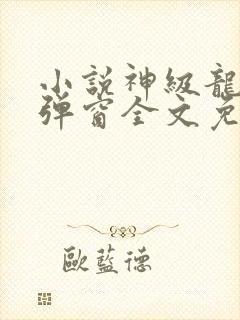 小說神級龍
彈窗全文免
歐藍德